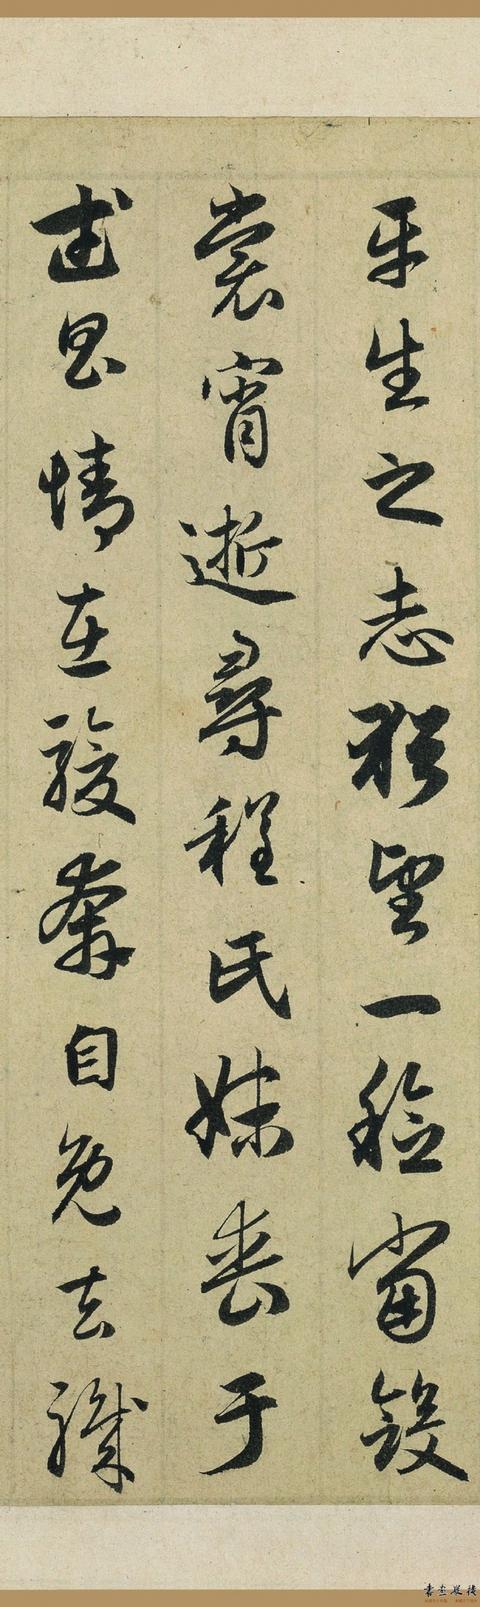 平生之志猶望一稔當斂
裳宵逝尋程氏妹喪于
武昌情在駿奔自免去職
書畫